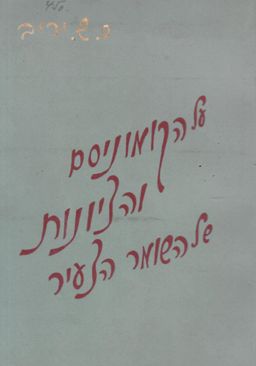 ס. ש. יריב
על הקומוניסם
והציונות
של השומר הצעיר